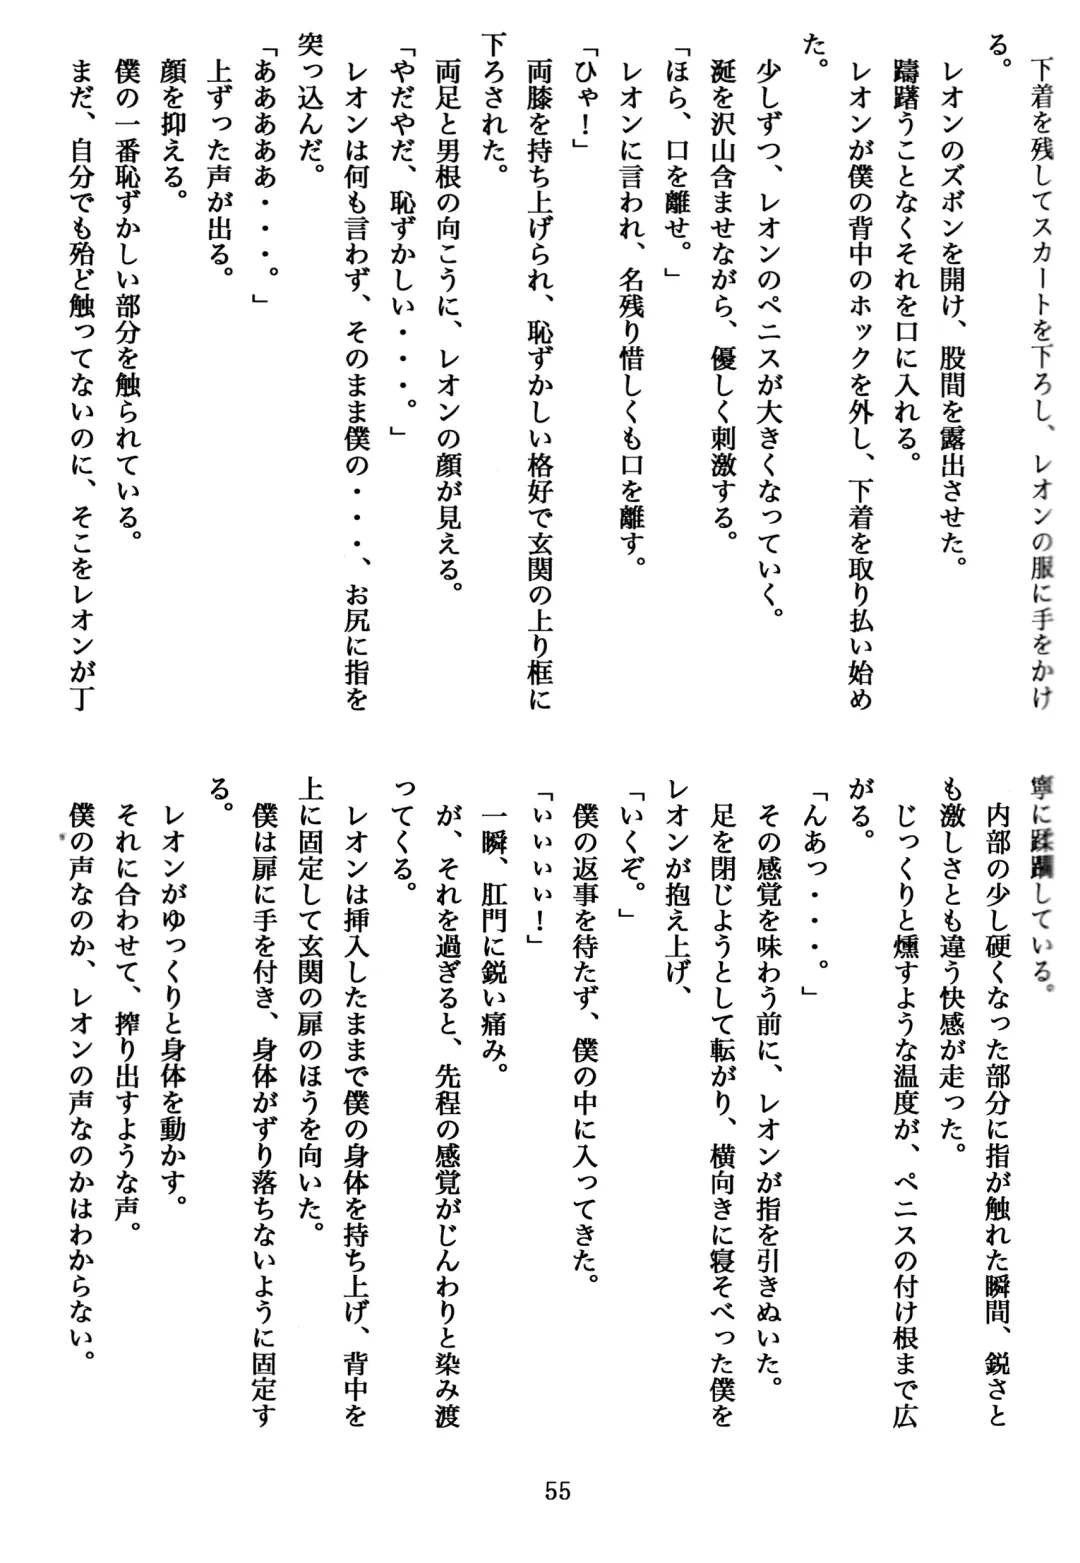 下着を残してスカートを下ろし、レオンの服に手をかけ
る。
レオンのズボンを開け、股間を露出させた。
躊躇うことなくそれを口に入れる。
レオンが僕の背中のホックを外し、下着を取り払い始め
た。
少しずつ、レオンのペニスが大きくなっていく。
涎を沢山含ませながら、優しく刺激する。
「ほら、口を離せ。」
レオンに言われ、名残り惜しくも口を離す。
「ひゃ！」
両膝を持ち上げられ、恥ずかしい格好で玄関の上り框に
下ろされた。
両足と男根の向こうに、レオンの顔が見える。
「やだやだ、恥ずかしい・・・。」
レオンは何も言わず、そのまま僕の・・・、お尻に指を
突っ込んだ。
「あああああ・・・。」
上ずった声が出る。
顔を抑える。
僕の一番恥ずかしい部分を触られている。
まだ、自分でも殆ど触ってないのに、そこをレオンが丁
寧に蹂躙している。
内部の少し硬くなった部分に指が触れた瞬間、鋭さと
も激しさとも違う快感が走った。
じっくりと燻すような温度が、ペニスの付け根まで広
がる。
「んあっ・・・。」
その感覚を味わう前に、レオンが指を引きぬいた。
足を閉じようとして転がり、横向きに寝そべった僕を
レオンが抱え上げ、
「いくぞ。」
僕の返事を待たず、僕の中に入ってきた。
「いいいい！」
一瞬、肛門に鋭い痛み。
が、それを過ぎると、先程の感覚がじんわりと染み渡
ってくる。
レオンは挿入したままで僕の身体を持ち上げ、背中を
上に固定して玄関の扉のほうを向いた。
僕は扉に手を付き、身体がずり落ちないように固定す
る。
レオンがゆっくりと身体を動かす。
それに合わせて、搾り出すような声。
僕の声なのか、レオンの声なのかはわからない。
55